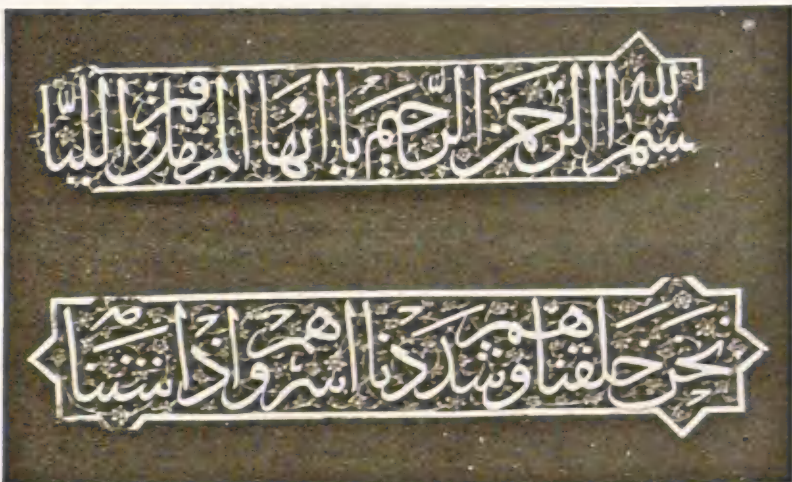 بسم الله الرحمن الرحيم يا ايها المزمل قم الليل
نحن خلقناهم وشددنا اسرهم واذا شئنا